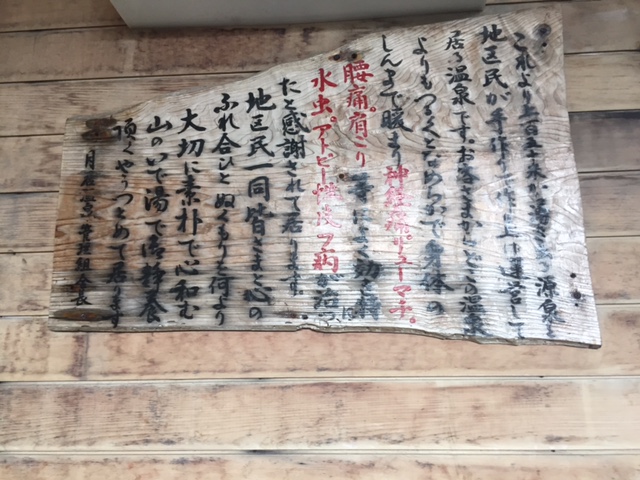 これより二百五十米が湯
源泉で
地区民が手作りで
運営して
居る温泉です。お客さまからどこの温泉
よりもつるつるとなめらかで身体の
しんまで暖まり神経痛。リューマチ。
腰痛。肩こり
水虫。アトピー性皮フ病が治っ
たと感謝されて居ります。
地区民一同皆さまと心の
ふれ合ひとぬくもりを何より
大切に素朴で心和む
山のいで湯で御静養
頂くやうつとめて居ります